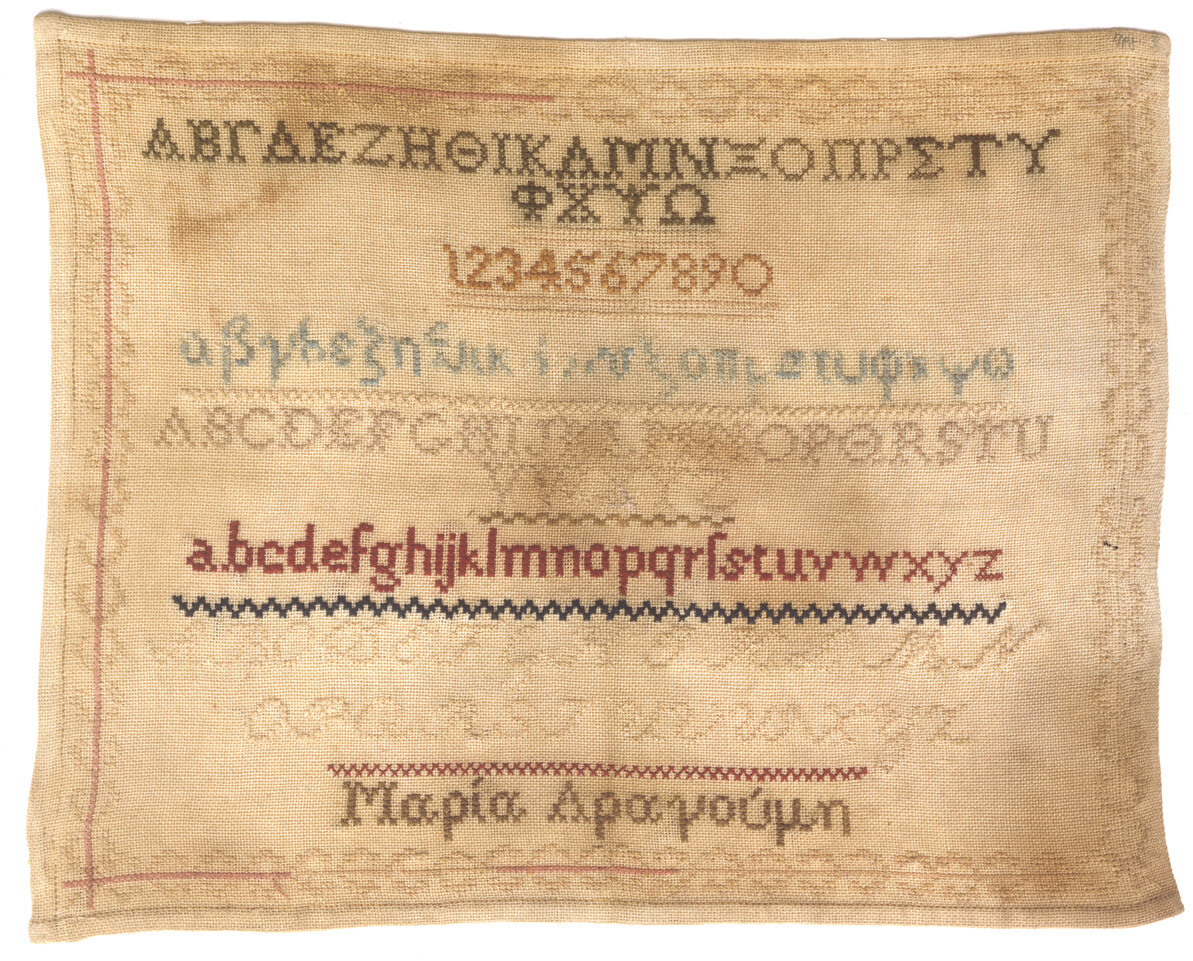 ΑΒΓΔΕΖΗΘΙΚΛΜΝΞΟΠΡΣΤΥ
ΦΧΨΩ
1234567890
αβγδεζηθικλμνξοπρστυφχψω
ABCDEFGHIJKLMNOPQRSTU
VWXYZ
abcdefghijklmnopqrſstuvwxyz
Μαρία Δραγούμη